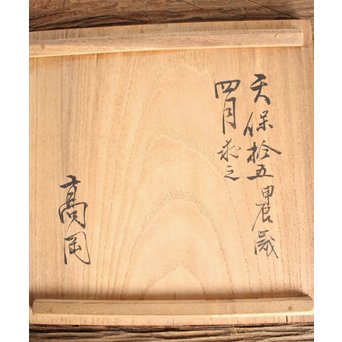 天保拾五甲辰歳
四月求之
高岡